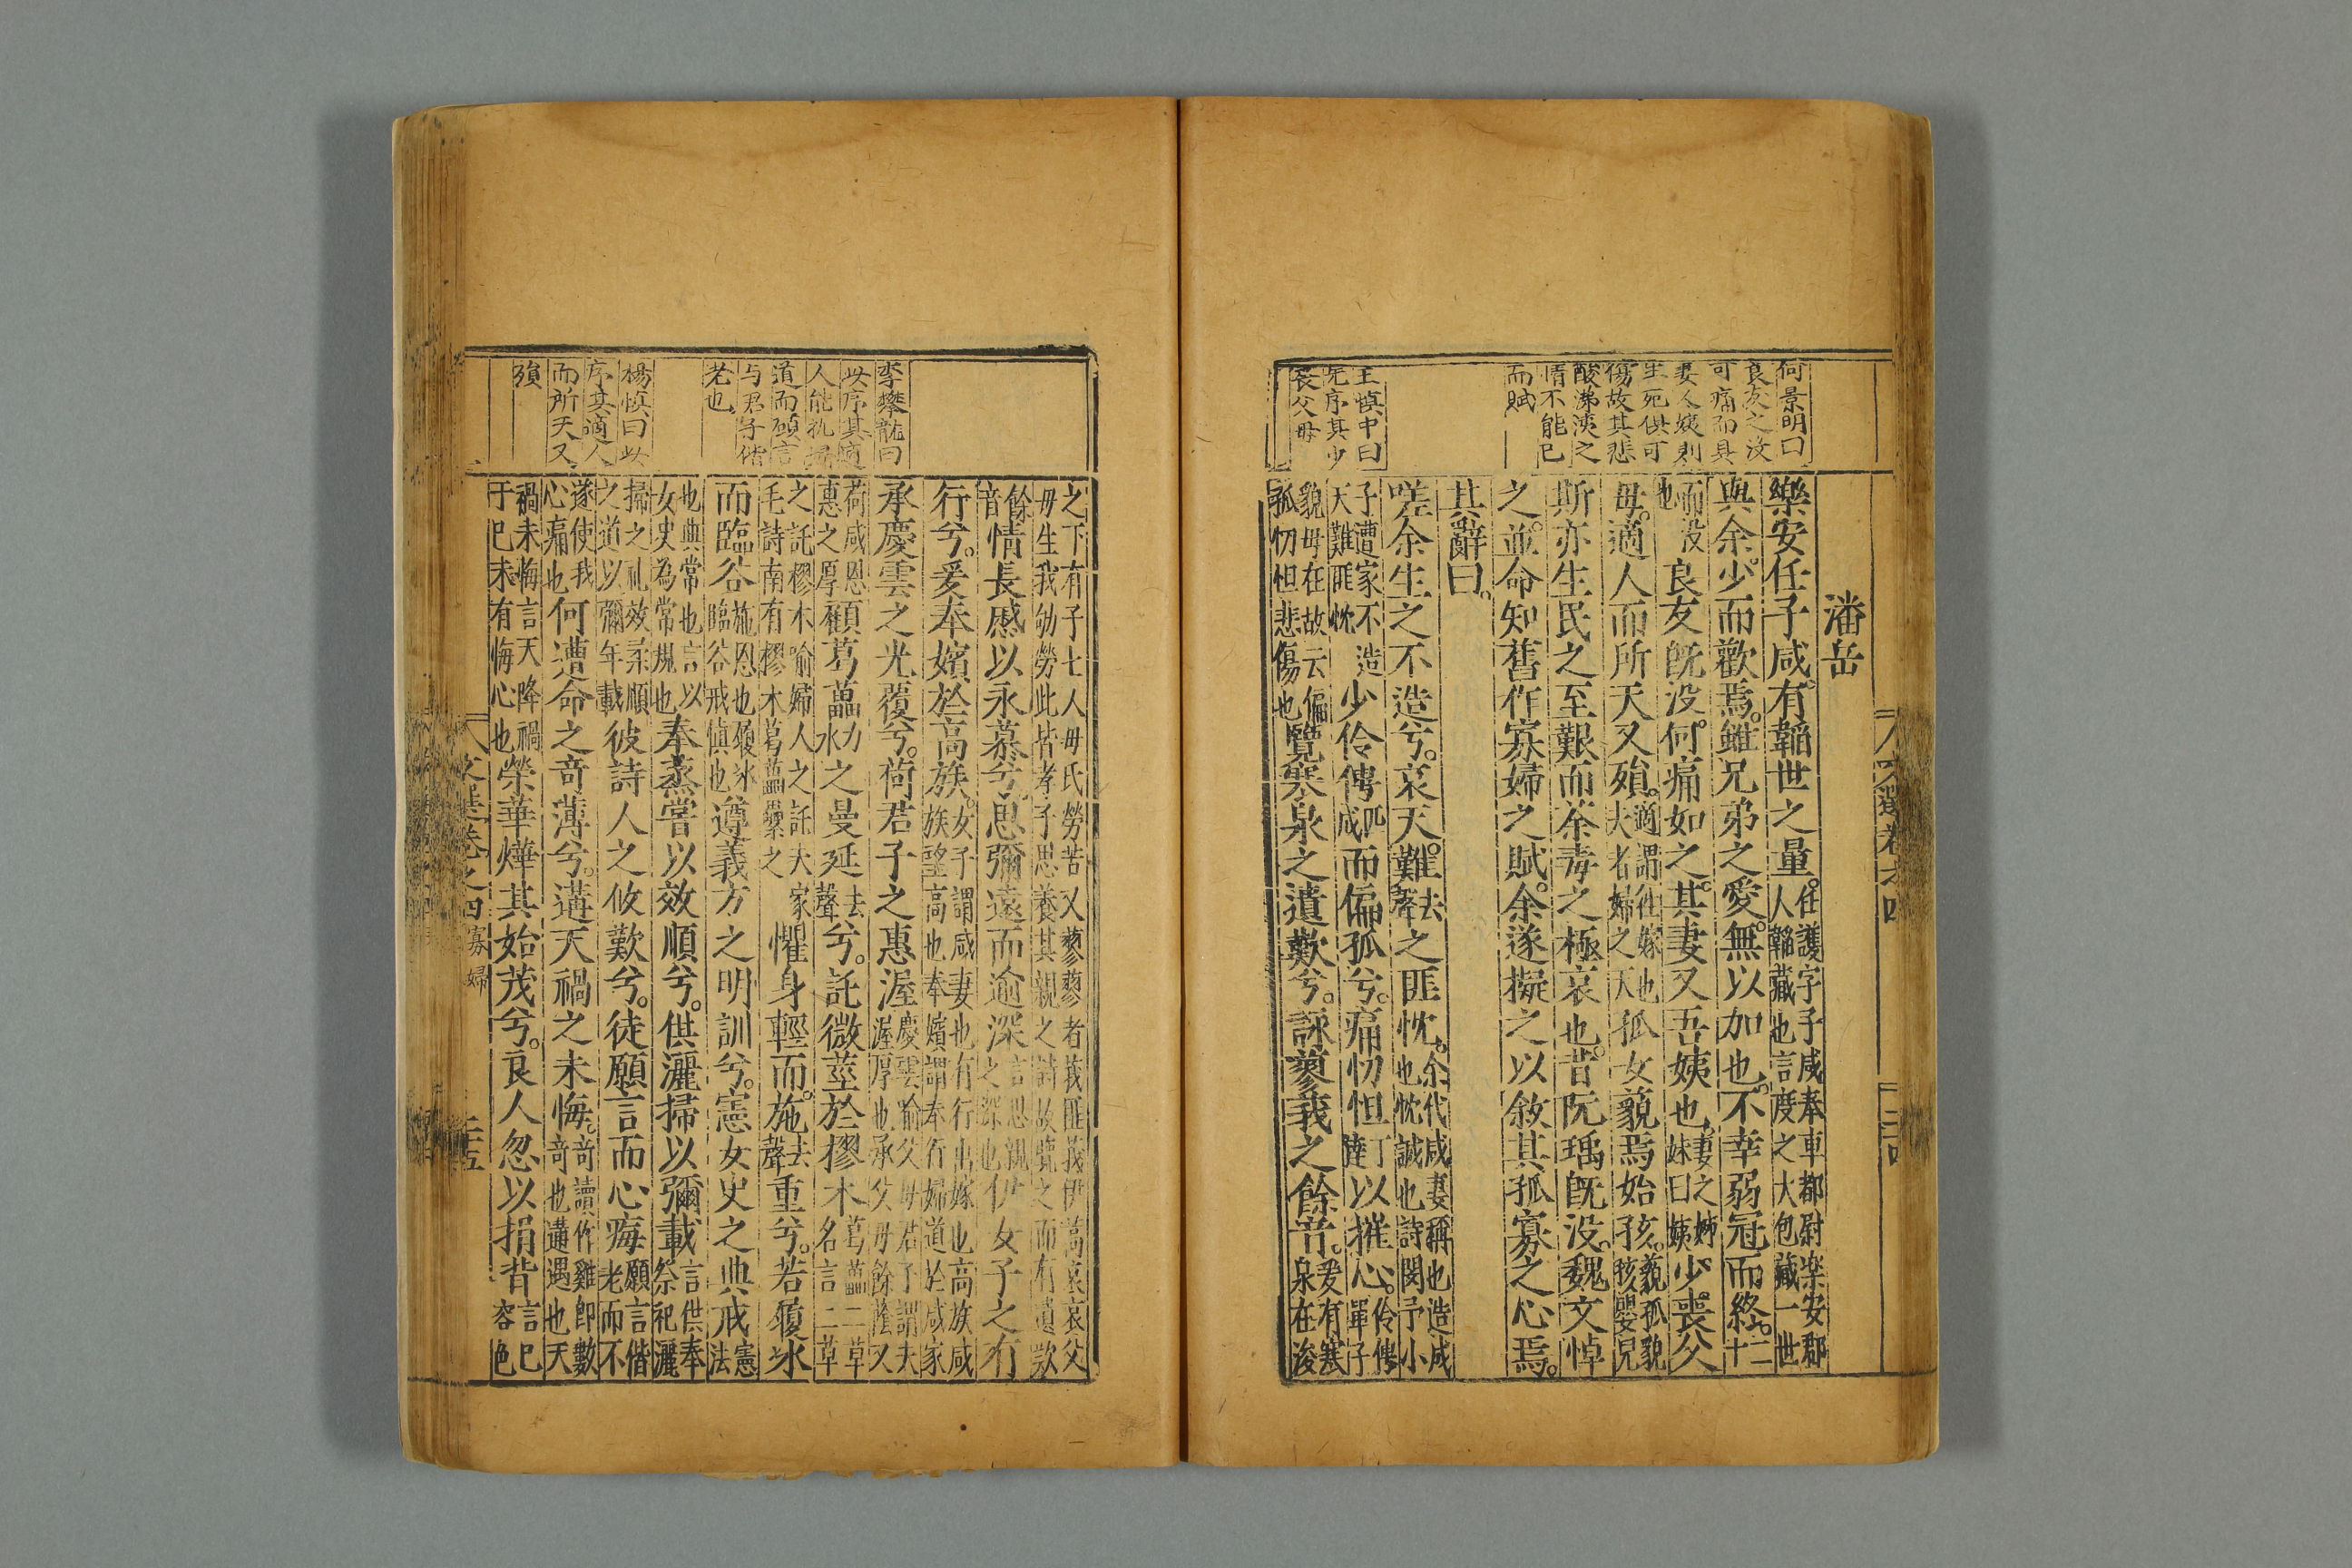 何景明曰
良友之没
可痛而具
妻人嫠剥
生死俱可
傷故其悲
酸涕洟之
情不能已
而賦
王慎中曰
先序其少
丧父母
潘岳
樂安任子咸。有韜世之量。任護字子咸奉車都尉楽安郡人韜藏也言度之大包藏一世
與余。少而歡焉。雖兄弟之愛。無以加也。不幸弱冠而終。二十
而没也良友旣没。何痛如之。其妻又吾姨也。妻之姊妹曰姨少。喪父
母。適人而所天又殞。適謂往嫁也夫者婦之天孤女藐焉始孩。藐孤貌孩嬰兒
斯亦生民之至艱而荼毒之極哀也。昔阮瑀旣没。魏文悼
之。並命知舊作寡婦之賦。余遂擬之以敘其孤寡之心焉。
其辭曰。
嗟余生之不造兮。哀天。難去聲之匪忱。余代咸妻稱也造成也忱誠也詩閔予小
子遭家不造天難匪忱少伶俜匹成而偏孤兮。痛忉怛丁達以摧心。伶俜單子
貌毋在故云偏孤忉怛悲傷也覽寒泉之遺歎兮。詠蓼莪之餘音。爰有寒泉在浚
文選卷之四
李攀龍曰
此序其適
人能執婦
道而願言
与君子偕
老也
楊慎曰此
序其適人
而所天又
殞
之下有子七人毋氏勞苦又蓼蓼者莪匪莪伊蒿哀哀父毋生我劬勞此皆孝子思養其親之詩故覽之而有遺歎
餘音情長慼以永慕兮。思彌遠而逾深言思親之深也伊女子之有
行兮。爰奉嬪於高族。女子謂咸妻也有行出嫁也高族咸族望高也奉嬪謂奉行婦道於咸家
承慶雲之光覆兮。荷君子之惠渥慶雲喻父毋君子謂夫渥厚也承父毋餘蔭又
荷咸恩惠之厚顧葛藟力水之曼延去聲兮。託微莖於樛木葛藟二草名言二草
之託樛木喻婦人之託夫家毛詩南有樛木葛藟纍之懼身輕而。施去聲重兮。若履冰
而臨谷施恩也履冰臨谷戒慎也遵義方之明訓兮。憲女史之典戒憲法
也典常也言以女史為常規也奉蒸嘗以效順兮。供灑掃以彌載言供奉祭祀灑
掃之礼效柔順之道以彌年載彼詩人之攸歎兮。徒願言而心痗願言偕老而不
遂使我心痛也何遭命之奇薄兮。遘天禍之未悔。奇讀作雞即數奇也遘遇也天
禍未悔言天降禍于已未有悔心也榮華燁其始茂兮。良人忽以捐背言已容色
文選卷之四 寡婦